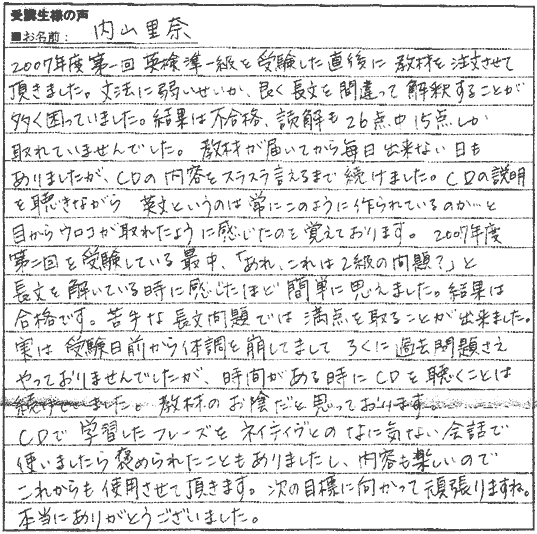 受講生様の声
■お名前： 内山里奈
2007年度第一回英検準一級を受験した直後に教材を注文させて
頂きました。文法に弱いせいか、良く長文を間違って解釈することが
多く困っていました。結果は不合格、読解も26点中15点しか
取れていませんでした。教材が届いてから毎日出来ない日も
ありましたが、CDの内容をスラスラ言えるまで続けました。CDの説明
を聴きながら 英文というのは常にこのように作られているのか…と
目からウロコが取れたように感じたのを覚えております。2007年度
第二回を受験している最中、「あれ、これは2級の問題？」と
長文を解いている時に感じたほど簡単に思えました。結果は
合格です。苦手な長文問題では満点を取ることが出来ました。
実は受験日前から体調を崩してまして ろくに過去問題さえ
やっておりませんでしたが、時間がある時にCDを聴くことは
続けていました。教材のお陰だと思っております。
CDで学習したフレーズをネイティヴとのなに気ない会話で
使いましたら褒められたこともありましたし、内容も楽しいので
これからも使用させて頂きます。次の目標に向かって頑張りますね。
本当にありがとうございました。